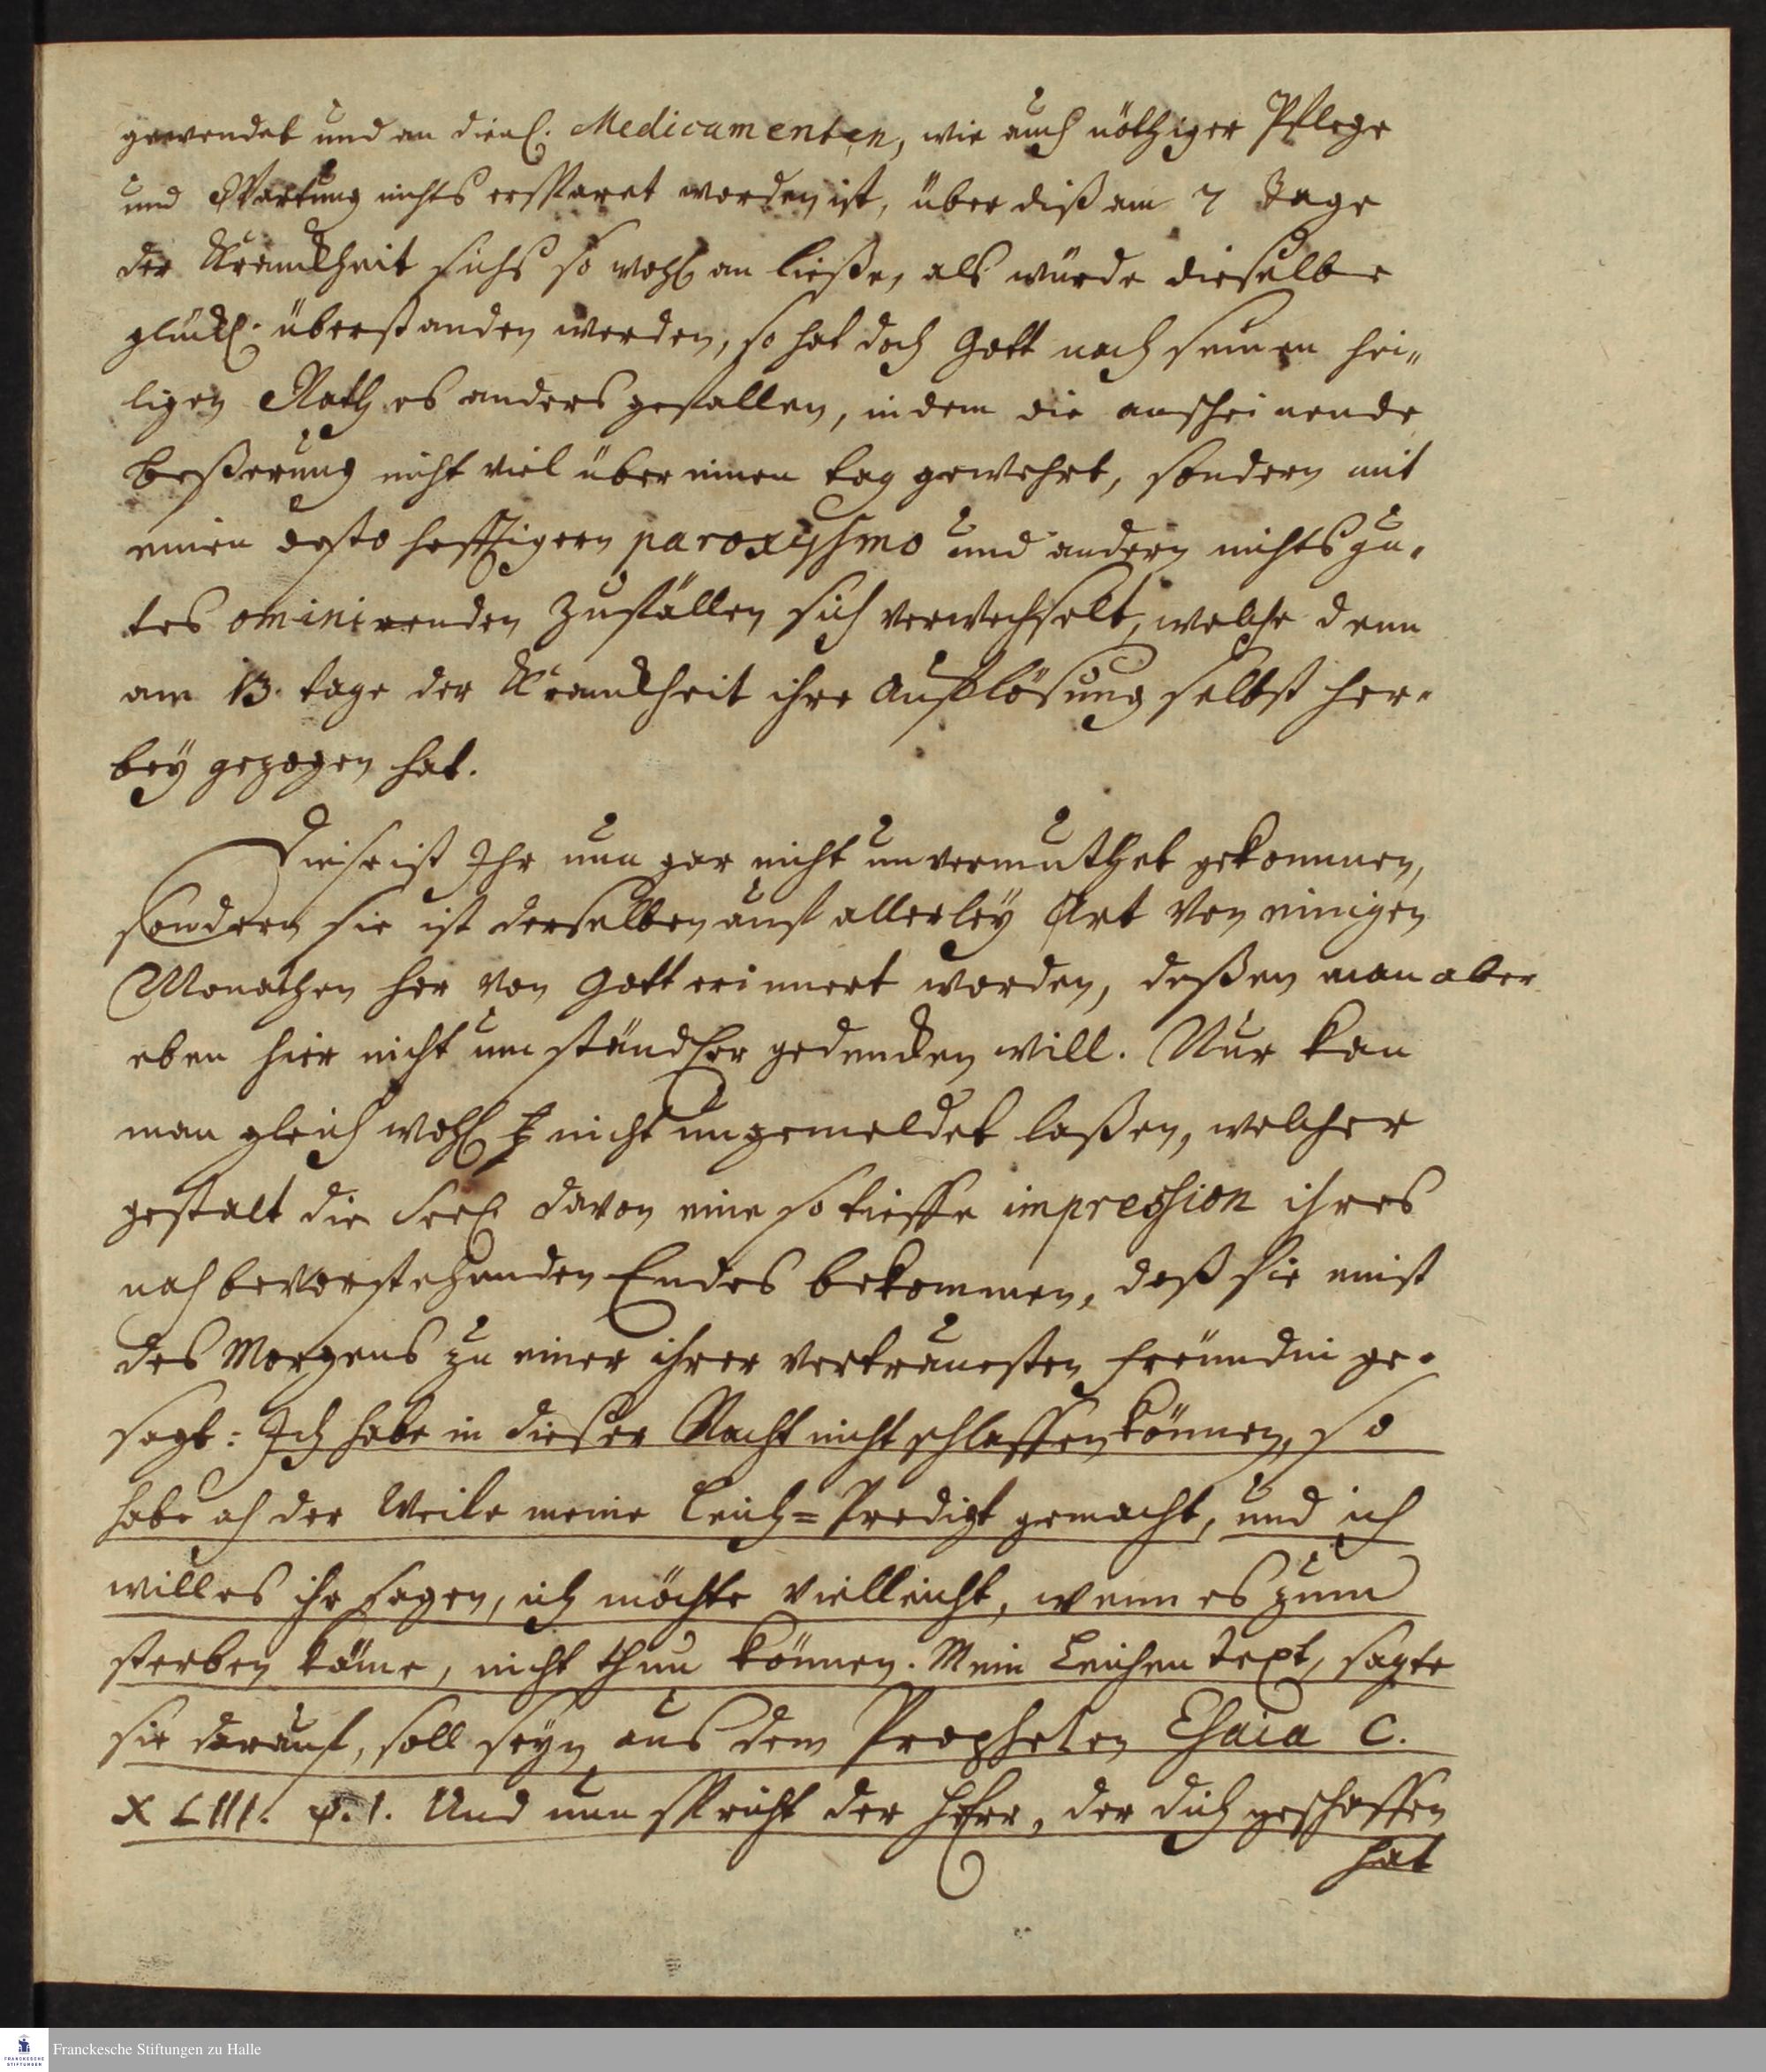 gewendet und an dienl. Medicamenten, wie auch nöthiger Pflege
und Wartung nichts ersparet worden ist, über diß am 7 Tage
der Kranckheit sichs so wohl an ließe, als würde dieselbe
glückl. überstanden werden, so hat doch Gott nach seinen hei„
ligen Rath es anders gefallen, in dem die anscheinende
beßerung nicht viel über einen tag gewehrt, sondern mit
einen desto hefftigern paroxysmo und andern nichts gu-
tes ominirenden Zufällen sich verwechselt, welche denn
am 13. tage der Kranckheit ihre Aufflösung selbst her-
bey gezogen hat.
Diese ist Ihr nun gar nicht unvermuthet gekommen,
sondern sie ist derselben auf allerley Art von einigen
Monathen her von Gott erinnert worden, deßen man aber
eben hier nicht umständl.er gedencken will. Nur kan
man gleich wohl nicht ungemeldet laßen, welcher
gestalt die Seel. davon eine so tieffe impression ihres
nah bevorstehenden Endes bekommen, daß sie einst
des Morgens zu einer ihrer vertrautesten freundin ge-
sagt: Ich habe in dieser Nacht nicht schlaffen können, so
habe ich der Weile meine Leich=Predigt gemacht, und ich
will es ihr sagen, ich möchte vielleicht, wenn es zum
sterben käme, nicht thun können. Mein Leichen Text, sagte
sie darauf, soll seyn aus dem Propheten Esaia C.
XLIII. v. 1. Und nun spricht der HErr, der dich geschaffen
hat
Franckesche Stiftungen zu Halle
FRANCKESCHE
STIFTUNGEN